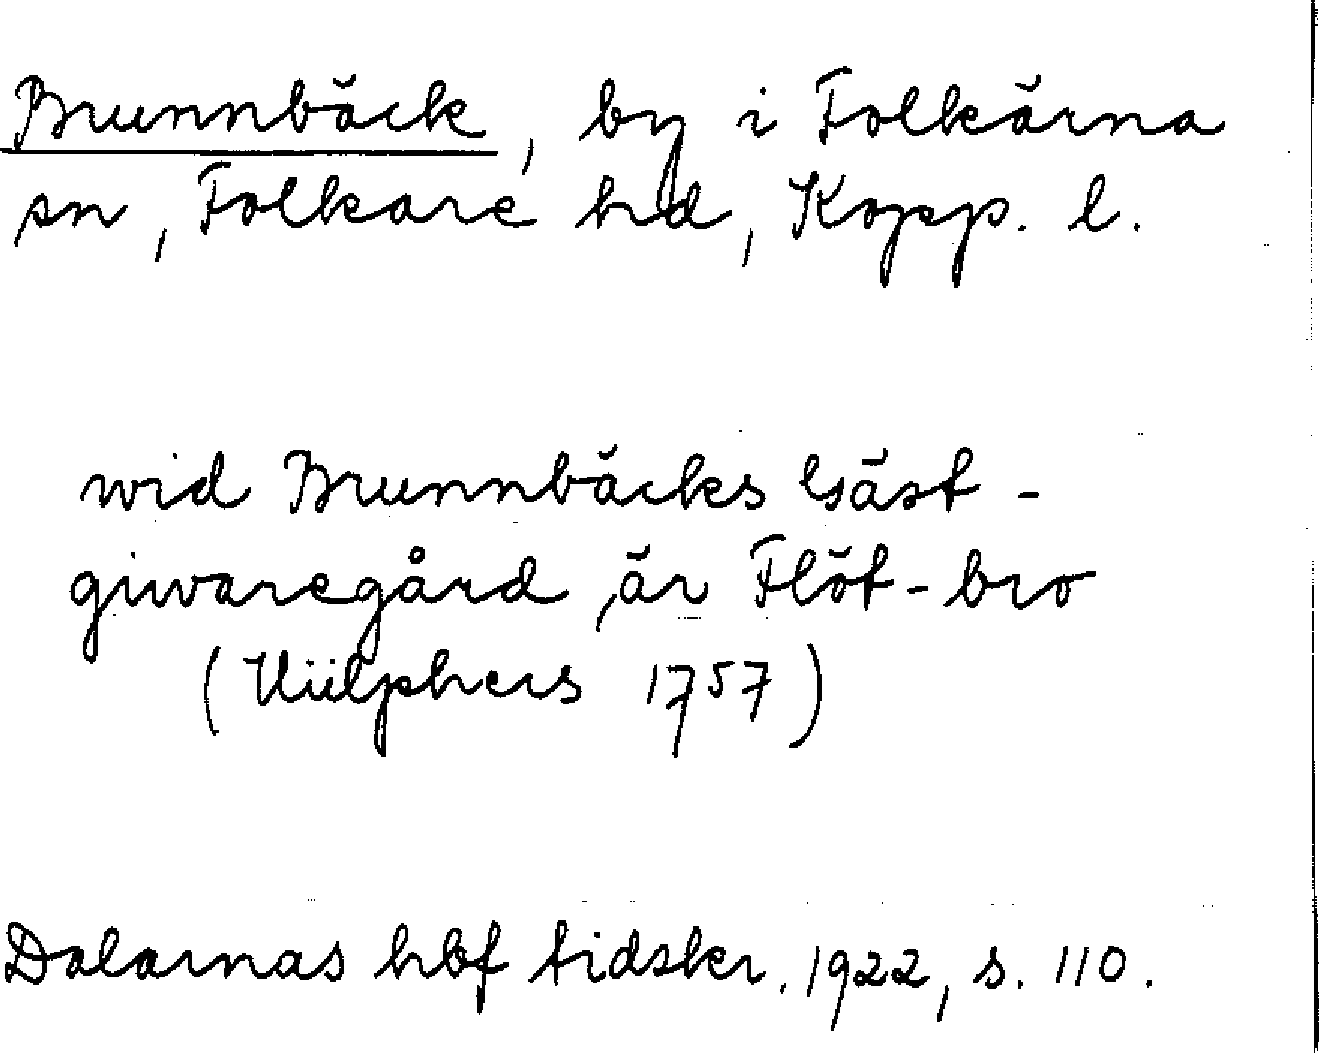 Brunnbäck, by i Folkärna
sn, Folkare hd, Kopp. l.
wid Brunnbäcks Gäst-
giwaregård, är Flöt-bro
(Hülphers 1757)
Dalarnas hbf tidskr. 1922, s. 110.